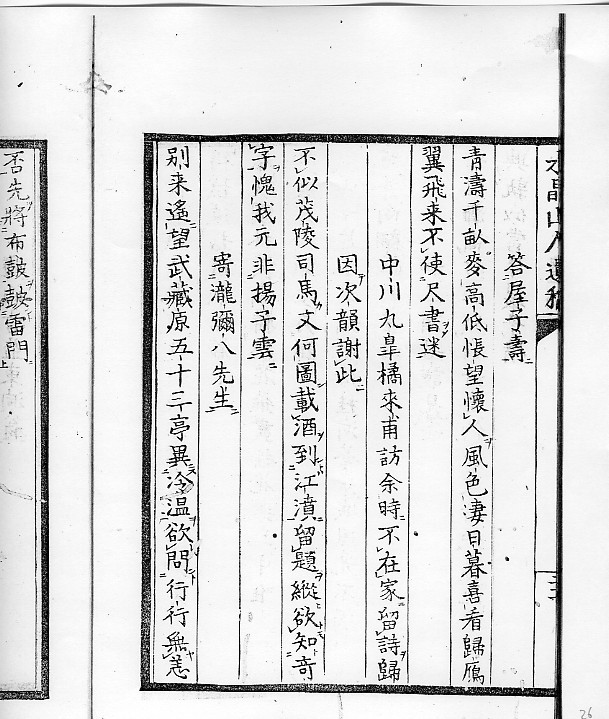 水晶山人遺稿
答屋子壽
青濤千畝麥高低悵望懷人風色凄日暮喜看歸鴈
翼飛来不使尺書迷
中川九皐橘來甫訪余時不在家留詩歸
因次韻謝此
不似茂陵司馬文何圖載酒到江濆留題縱欲知奇
字愧我元非揚子雲
寄瀧彌八先生
别来遙望武藏原五十三亭異冷温欲問行行無恙
否先將布鼓鼓雷門
26